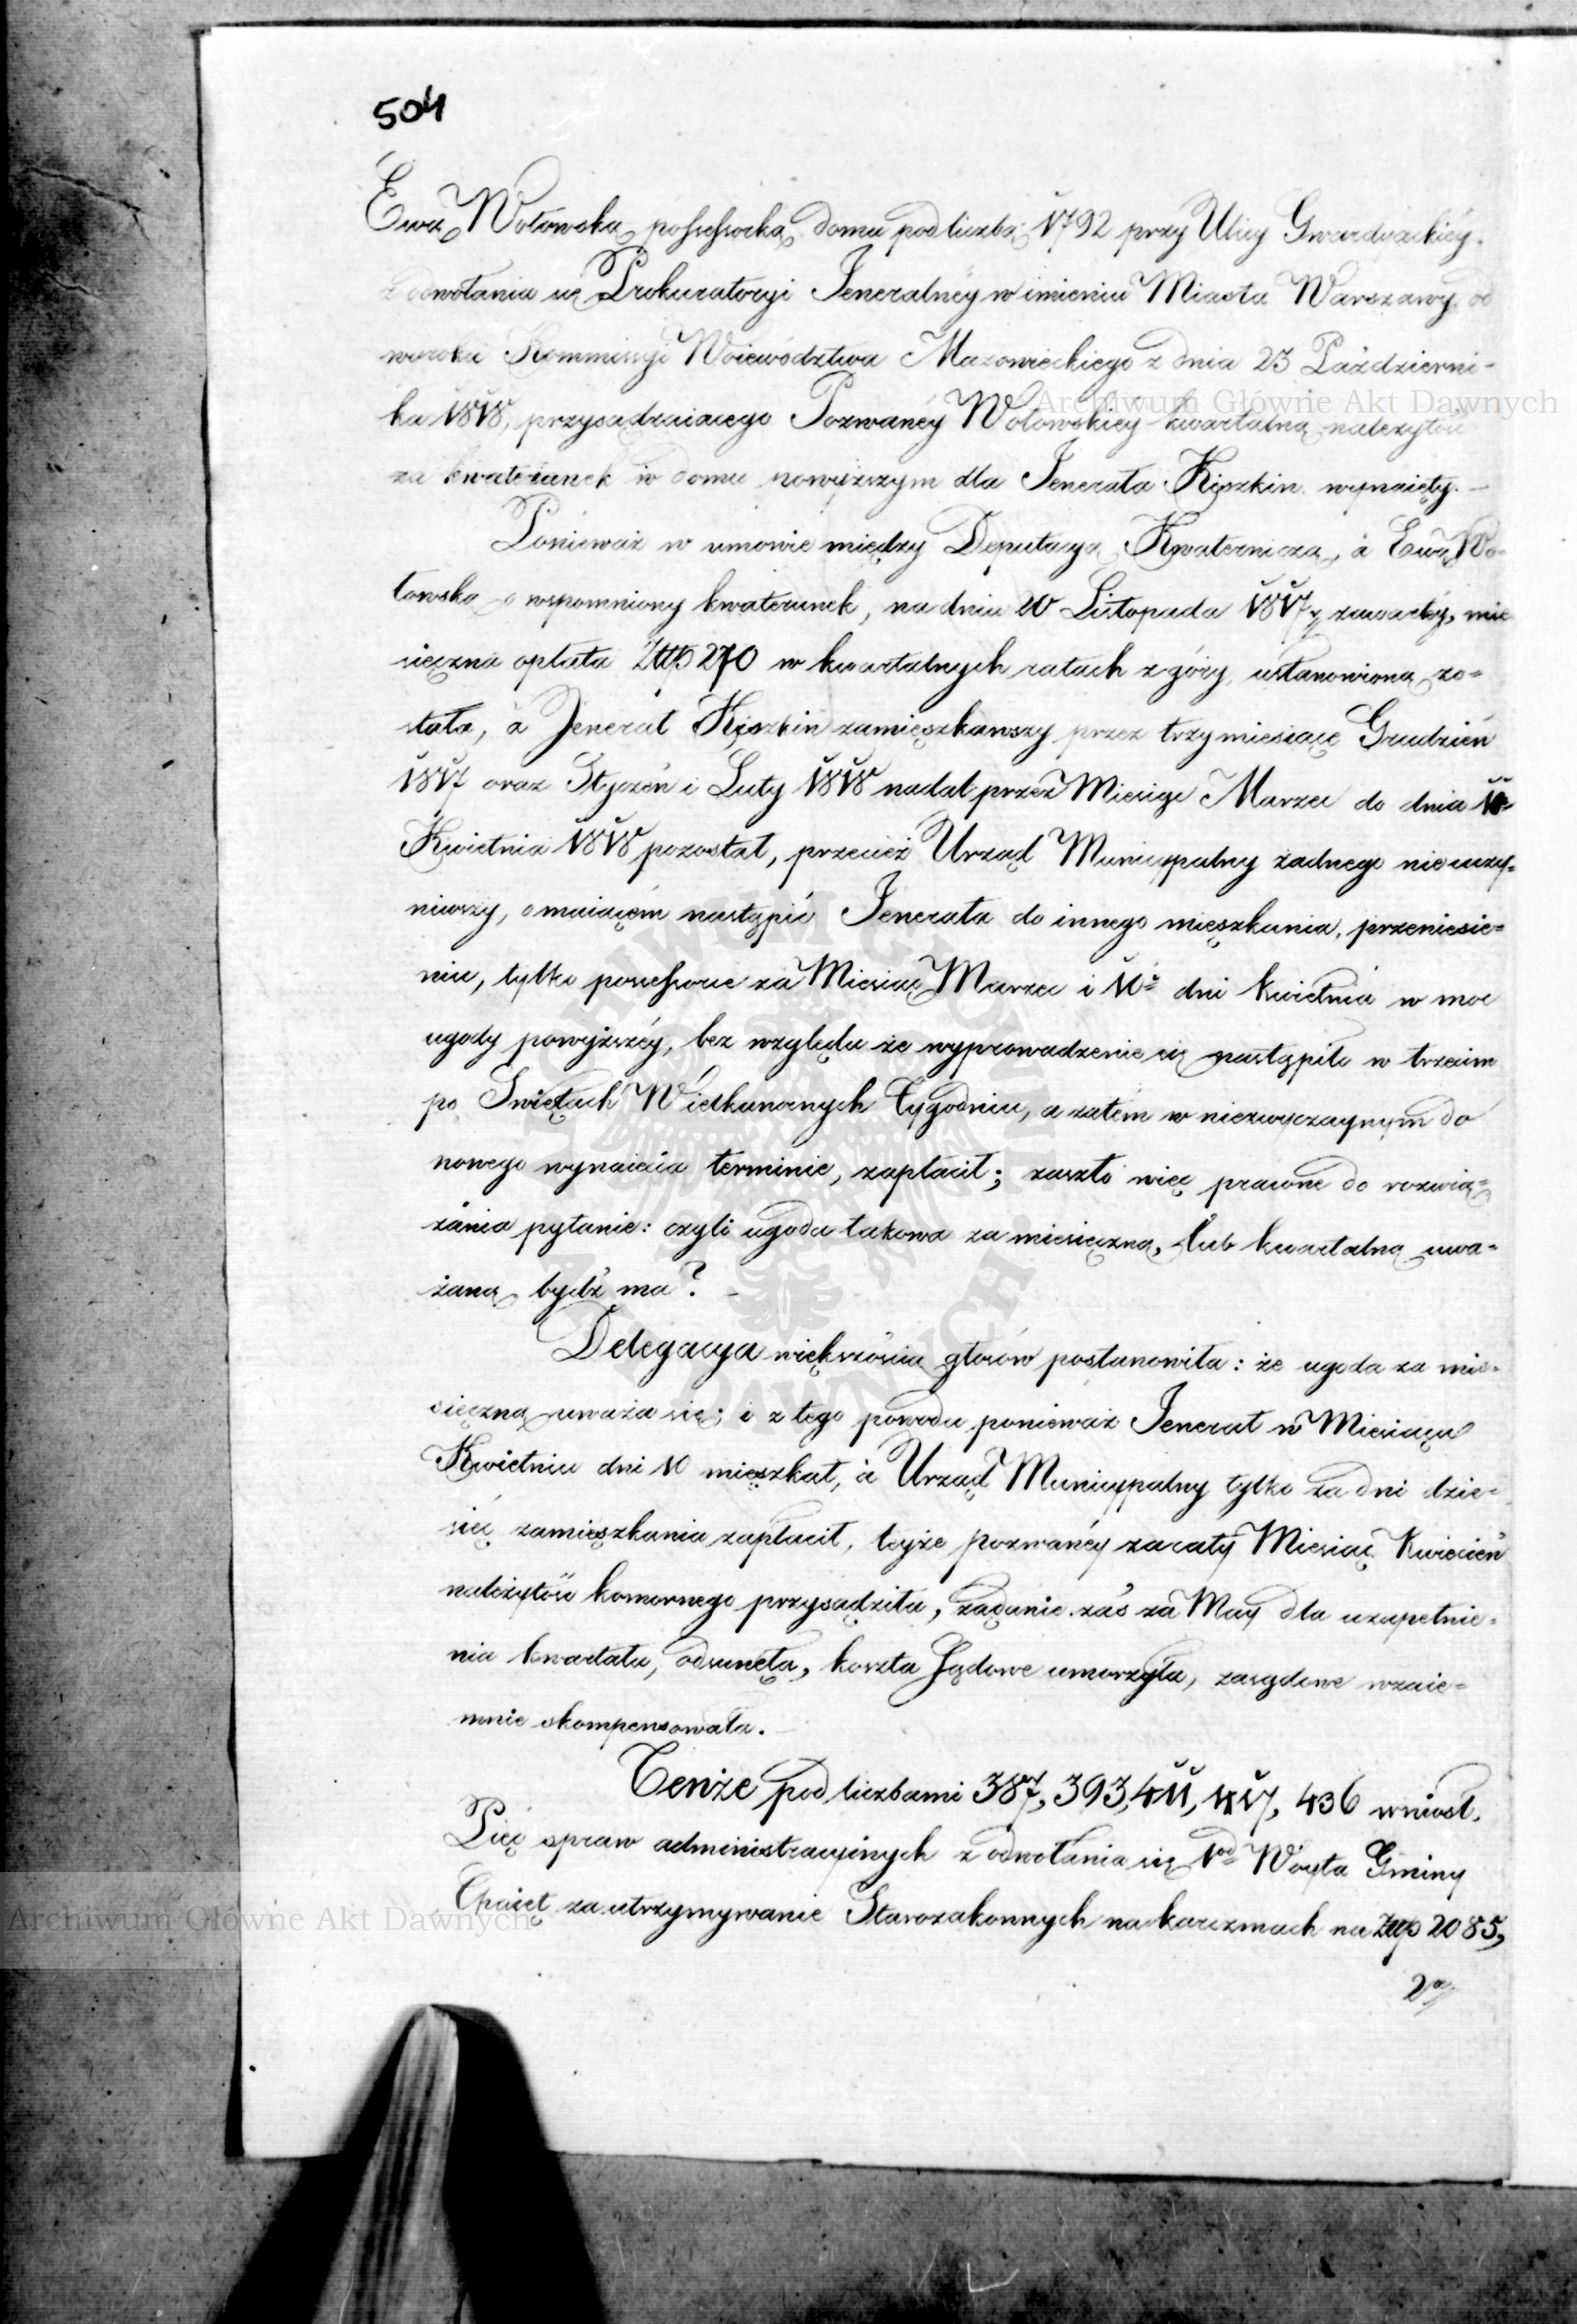 504
Ewą Wołowską possessorką domu pod liczbą 1792 przy Ulicy Gwardyackiéy.
z odwołania się Prokuratoryi Jeneralnéy w imieniu Miasta Warszawy od
wyroku Kommissyi Woiewództwa Mazowieckiego z dnia 23 Październi-
ka 1818, przysądzaiącego Pozwanéy Wołowskiéy kwartalną należytość
za kwaterunek w domu powyższym dla Jenerała Kiszkin wynaięty.—
Ponieważ w umowie między Deputacyą Kwaterniczą, à Ewą Wo-
łowską o wspomniony kwaterunek, na dniu 20 Listopada 1817 r. zawartéy, mie-
sięczna opłata Złtp 270 w kwartalnych ratach z góry ustanowioną zo-
stała, à Jenerał Kiszkin zamięszkawszy przez trzy miesiące Grudzień
1817 oraz Styczeń i Luty 1818 nadal przez Miesiąc Marzec do dnia 11º
Kwietnia 1818 pozostał, przecież Urząd Municypalny żadnego nieuczy-
niwszy, o maiącém nastąpić Jenerała do innego mięszkania, przeniesie-
niu, tylko possessorce za Miesiąc Marzec i 10º dni kwietnia w moc
ugody powyższéy, bez względu że wyprowadzenie się nastąpiło w trzecim
po Swiętach Wielkanocnych tygodniu, a zatém w niezwyczaynym do
nowego wynaięcia terminie, zapłacił; zaszło więc prawne do rozwią-
zania pytanie: czyli ugoda takowa za miesięczną, lub kwartalną uwa-
żaną bydź ma? —
Delegacya większością głosów postanowiła: że ugoda za mie-
sięczną uważa się; i z tego powodu ponieważ Jenerał w Miesiącu
Kwietniu dni 10 mięszkał, à Urząd Municypalny tylko za dni dzie-
sięć zamięszkania zapłacił, teyże pozwanéy za cały Miesiąc Kwiecień
należytość komornego przysądziła, żądanie zaś za May dla uzupełnie-
nia kwartału, odsunęła, koszta Sądowe umorzyła, zasądowe wzaie-
mnie skompensowała.—
Tenże pod liczbami 387, 393, 411, 417, 436 wniósł.
Pięć spraw administracyinych z odwołania się 1od Woyta Gminy
za utrzymywanie Starozakonnych na karczmach na Złtp 2085,
2º/
Archiwum Główne Akt Dawnych
Archiwum Główne Akt Dawnych